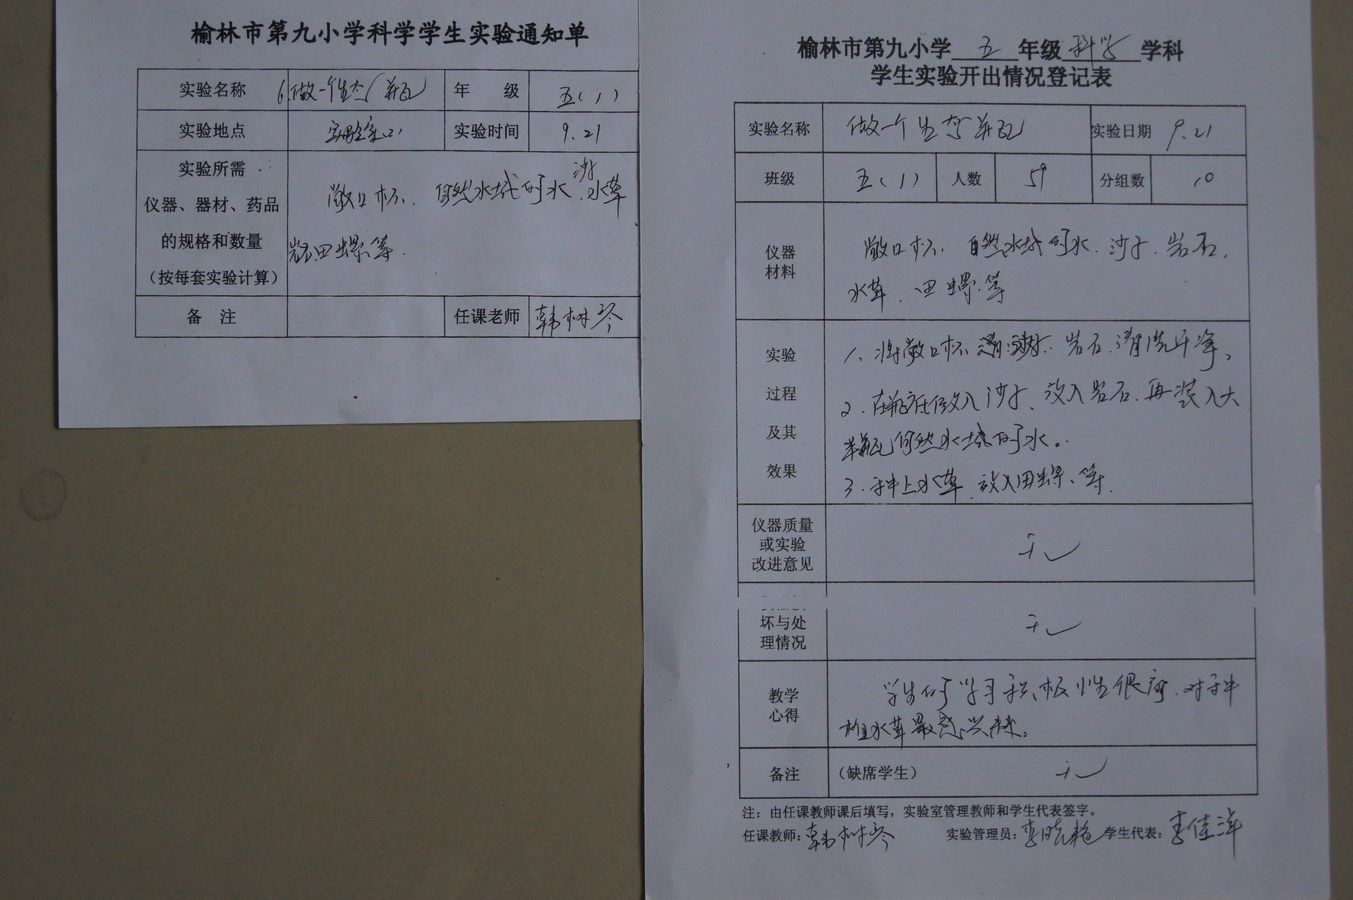 榆林市第九小学科学学生实验通知单
实验名称 6.做一个生态瓶 年 级 五(1)
实验地点 实验室(2) 实验时间 9.21
实验所需
仪器、器材、药品
的规格和数量
（按每套实验计算）
敞口杯. 自然水域的水.沙子.水草
岩石田螺等.
备 注 任课老师 韩树琴
榆林市第九小学 五 年级 科学 学科
学生实验开出情况登记表
实验名称 做一个生态瓶 实验日期 9.21
班级 五(1) 人数 59 分组数 10
仪器
材料
敞口杯. 自然水域的水.沙子.岩石.
水草、田螺等
实验
过程
及其
效果
1、将敞口杯 沙子.岩石.清洗干净。
2.在瓶底放入沙子.放入岩石.再装入大
半瓶自然水域的水。
3.种上水草.放入田螺、等.
仪器质量
或实验
改进意见
无
坏与处
理情况
无
教学
心得
学生的学习积极性很高.对于种
植水草最感兴趣。
备注 （缺席学生） 无
注：由任课教师课后填写，实验室管理教师和学生代表签字。
任课教师：韩树琴 实验管理员：李晓艳 学生代表：李佳洋